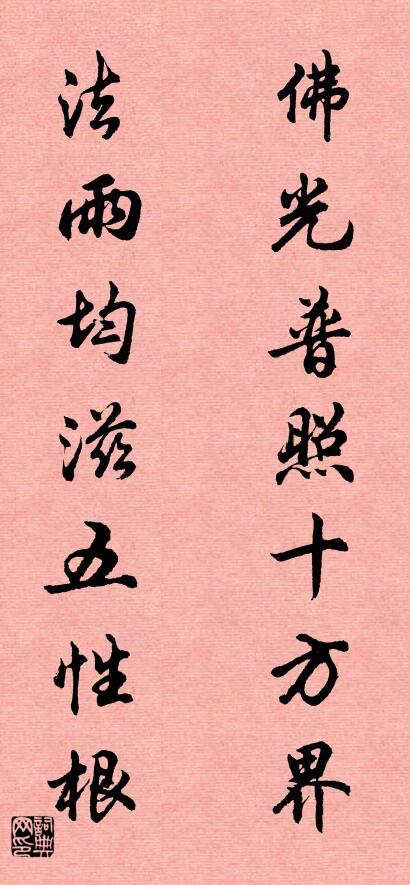 佛光普照十方界
法雨均滋五性根
詞典网印